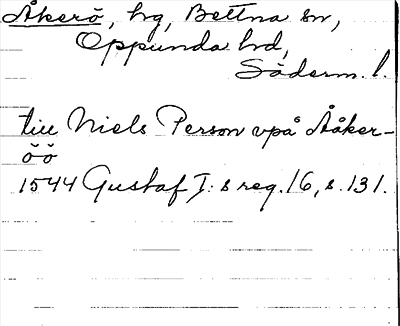 Åkerö, hg, Bettna sn,
Oppunda hd,
Söderm. l.
till Niels Person vpå Ååker-
öö
1544 Gustaf I:s reg. 16, s. 131.